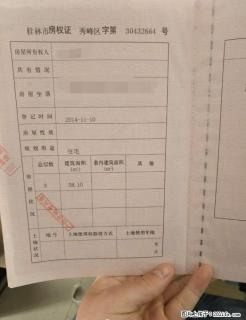 桂林市房权证 秀峰区 字第 30432664 号
房屋所有权人
共有情况
房屋坐落
登记时间 2014-11-10
房屋性质
规划用途 住宅
房屋状况
总层数 建筑面积(㎡) 套内建筑面积(㎡) 其他
58.10
土地状况
地号 土地使用权取得方式 土地使用年限
至
止